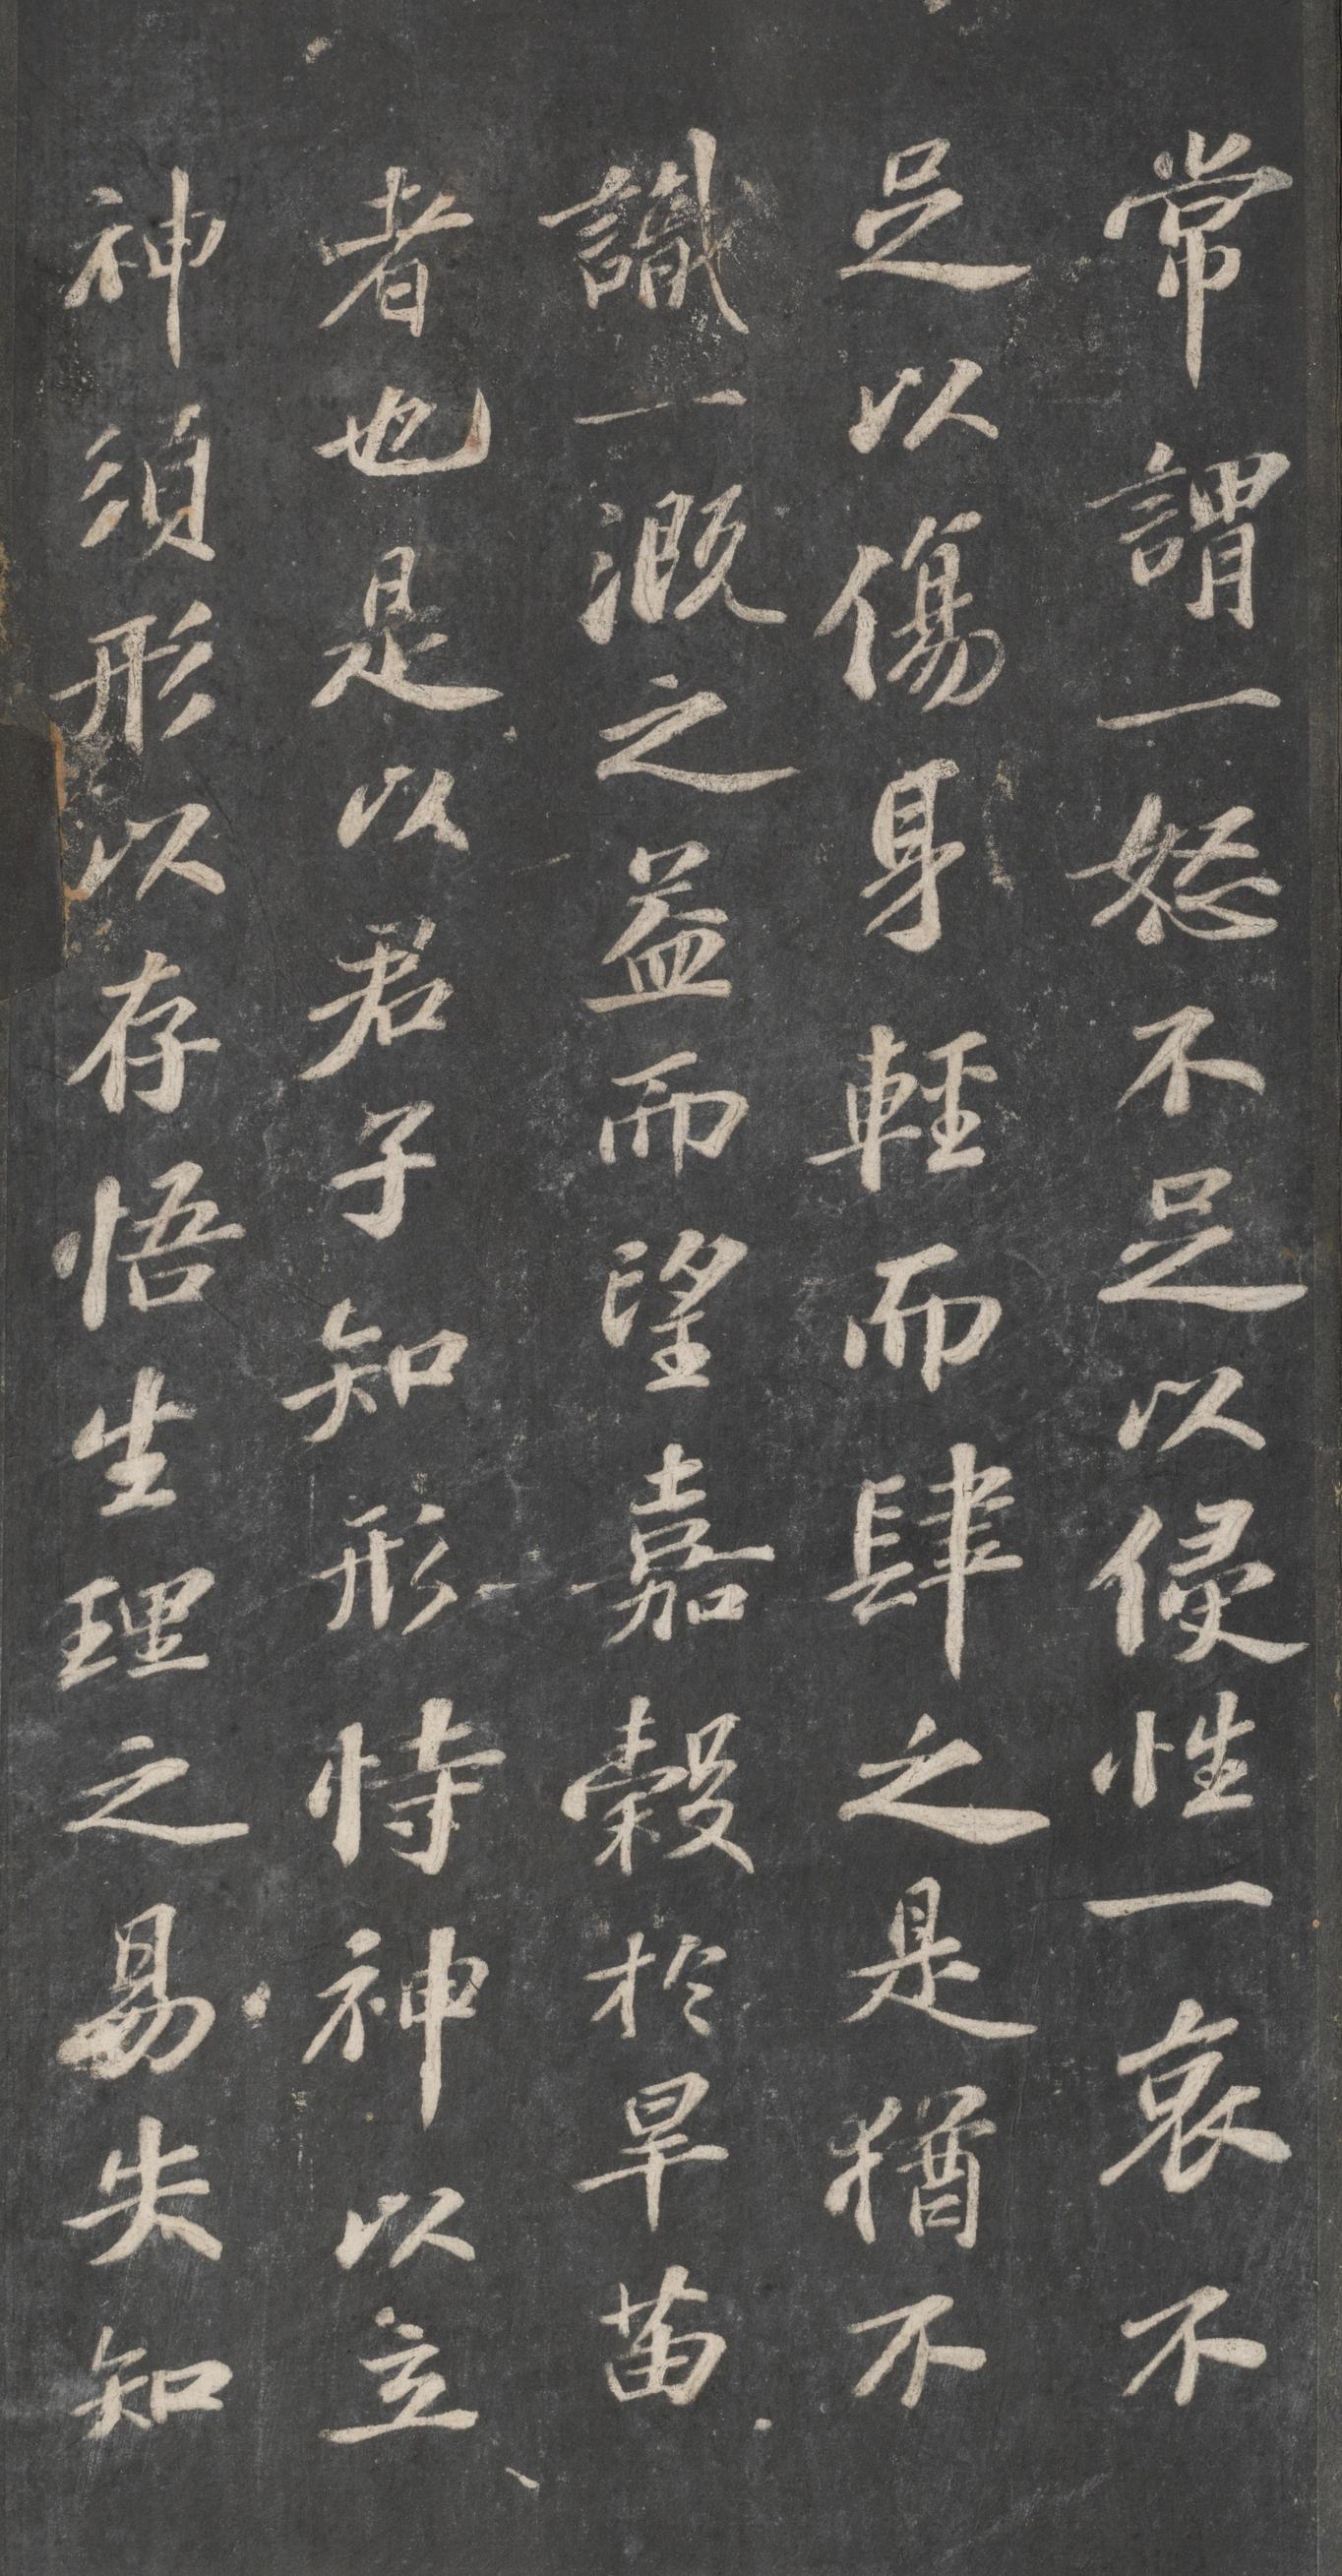 常謂一怒不足以侵性一哀不
足以傷身輕而肆之是猶不
識一溉之益而望嘉穀於旱苗
者也是以君子知形恃神以立
神須形以存悟生理之易失知